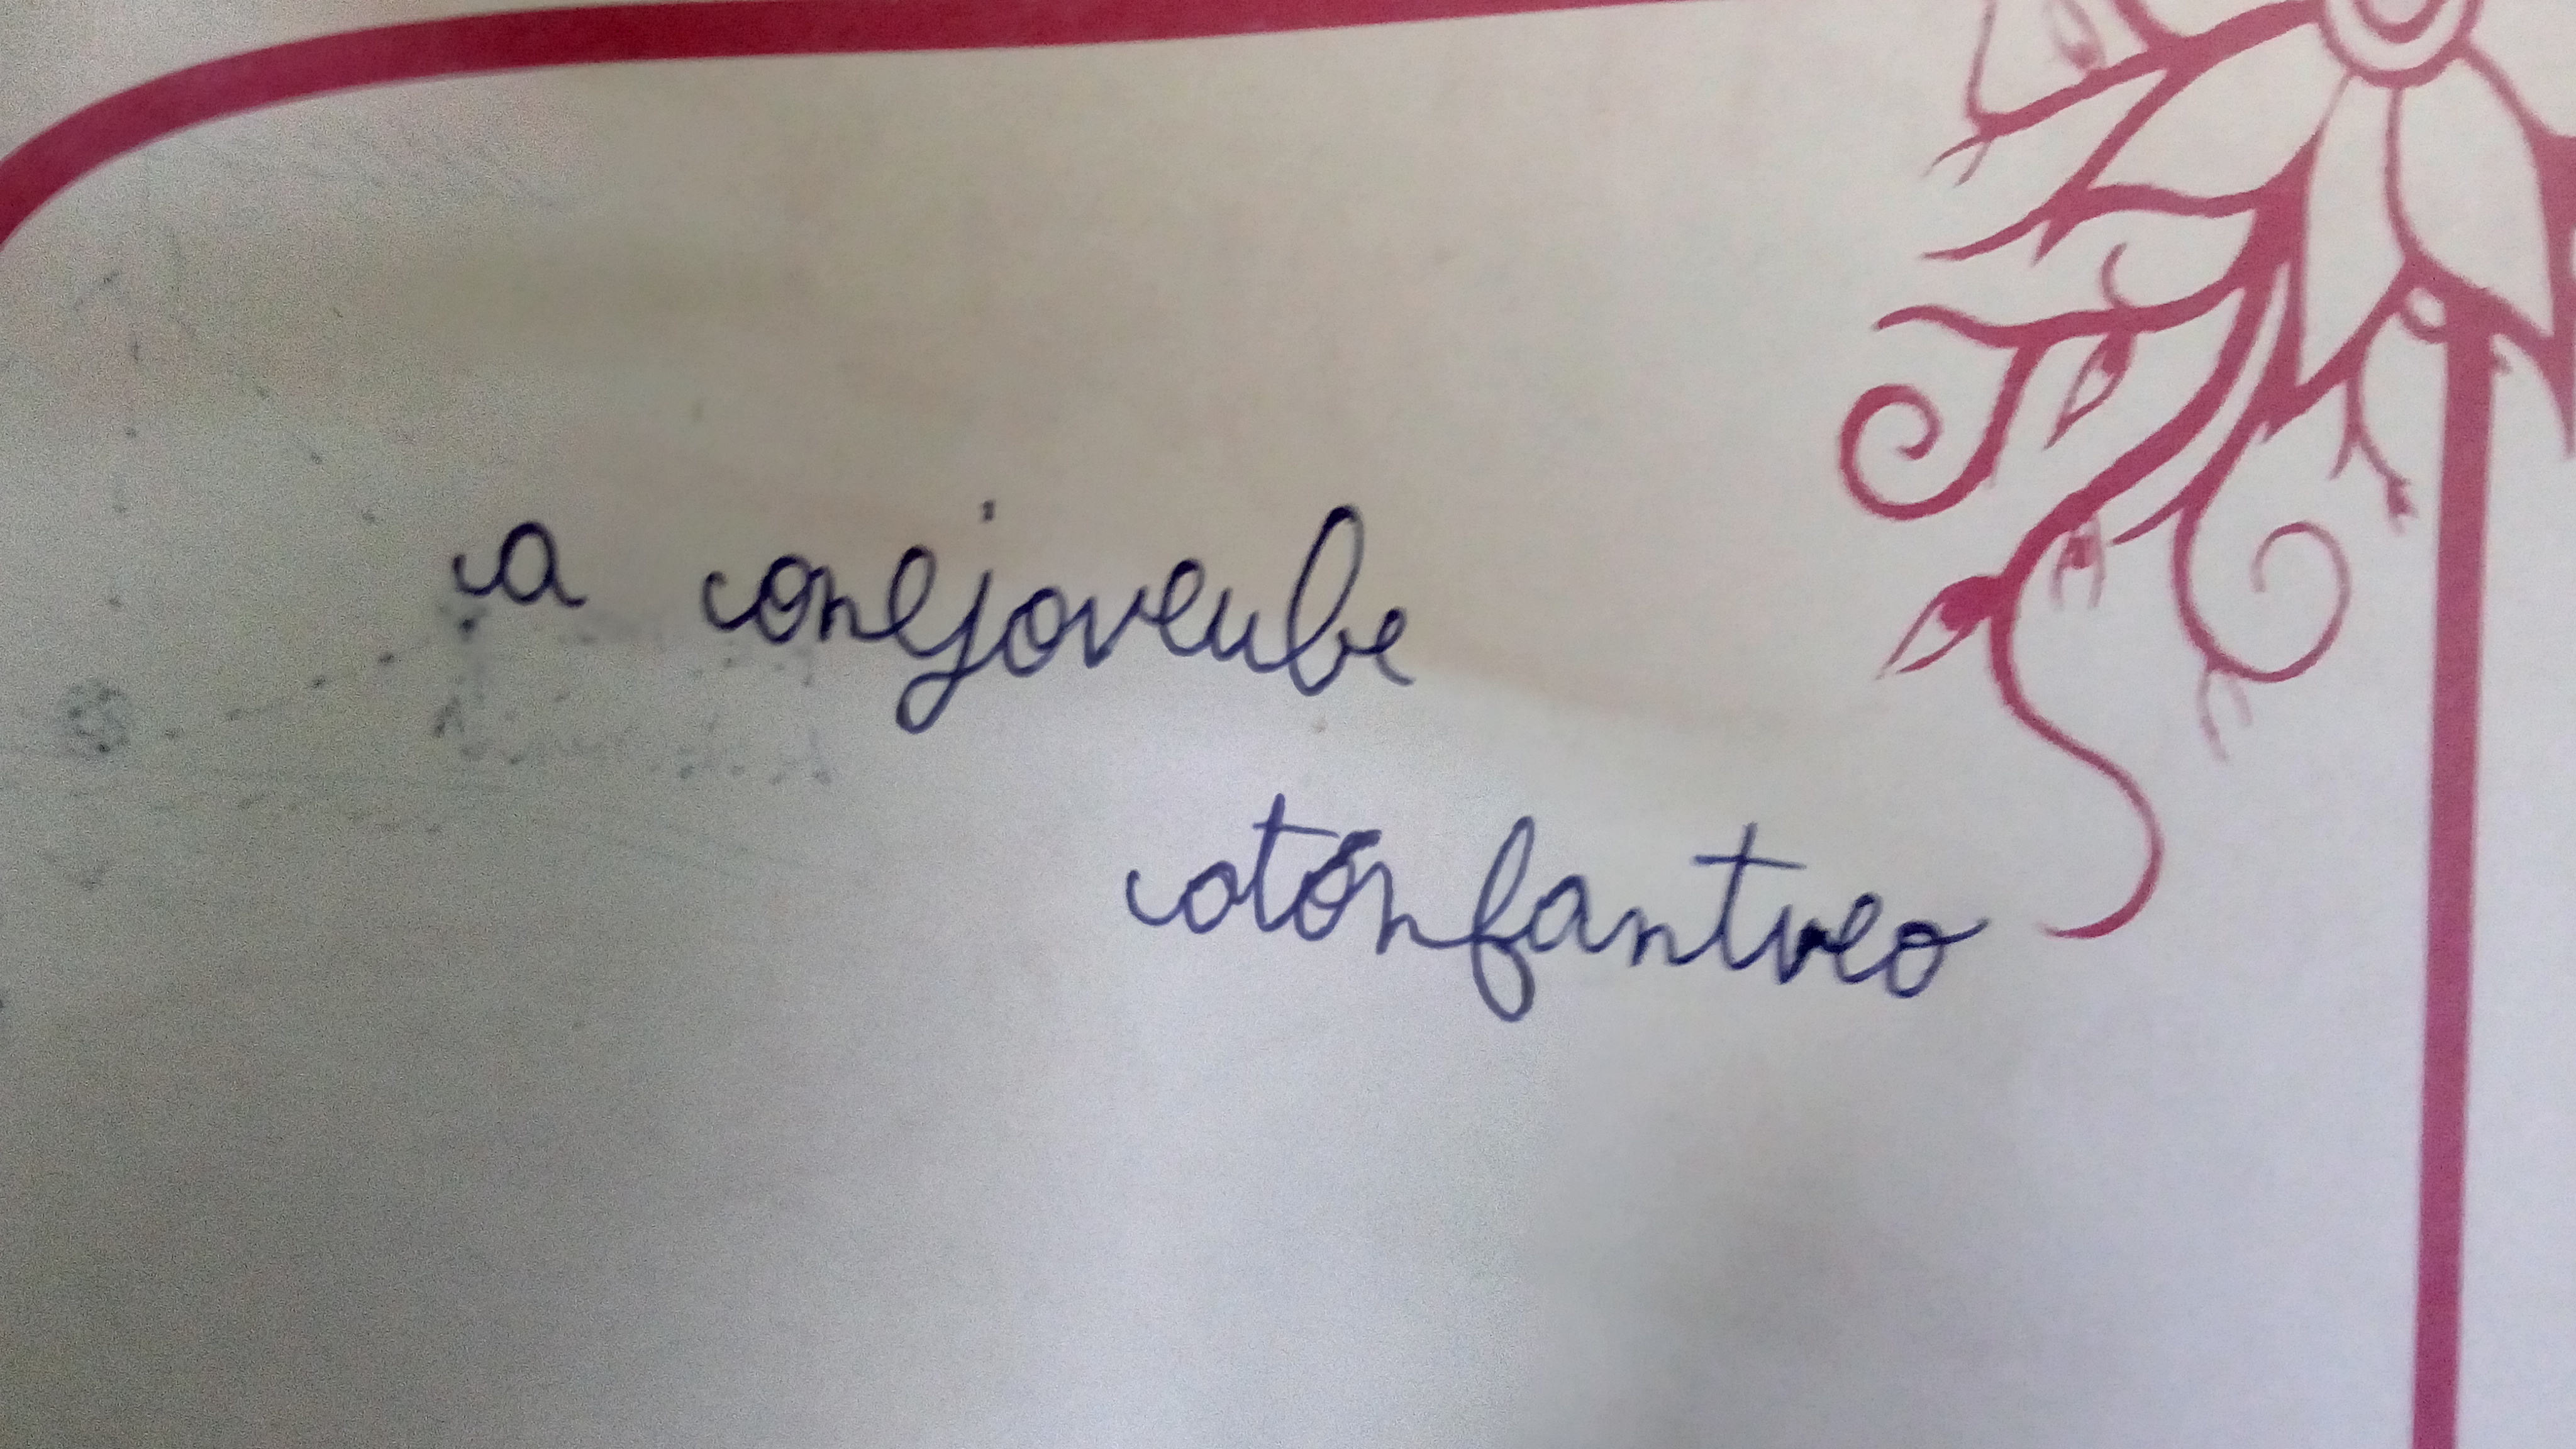 a conejoveube
otónfantveo